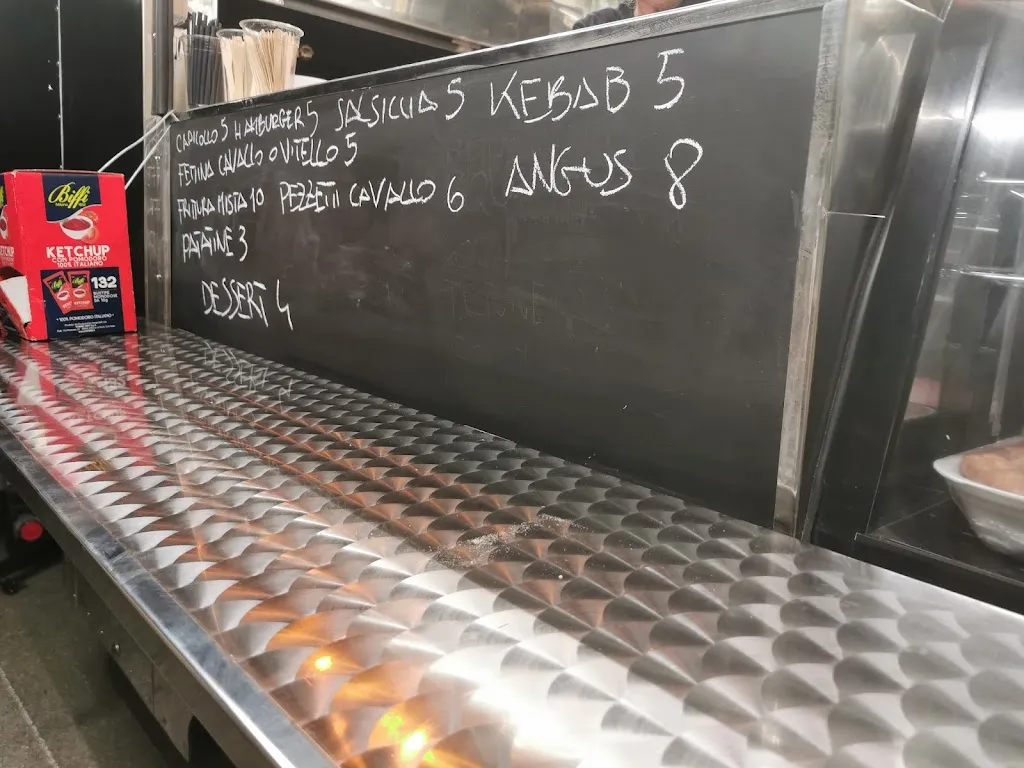 CAPICOLLO 5 HAMBURGER 5 SALSICCIA 5 KEBAB 5
FETTINA CAVALLO O VITELLO 5
FRITTURA MISTA 10 PEZZETTI CAVALLO 6 ANGUS 8
PATATINE 3
DESSERT 4
Biffi
KETCHUP
CON POMODORO
100% ITALIANO
132
BUSTINE
MONODOSE
"100% POMODORO ITALIANO"